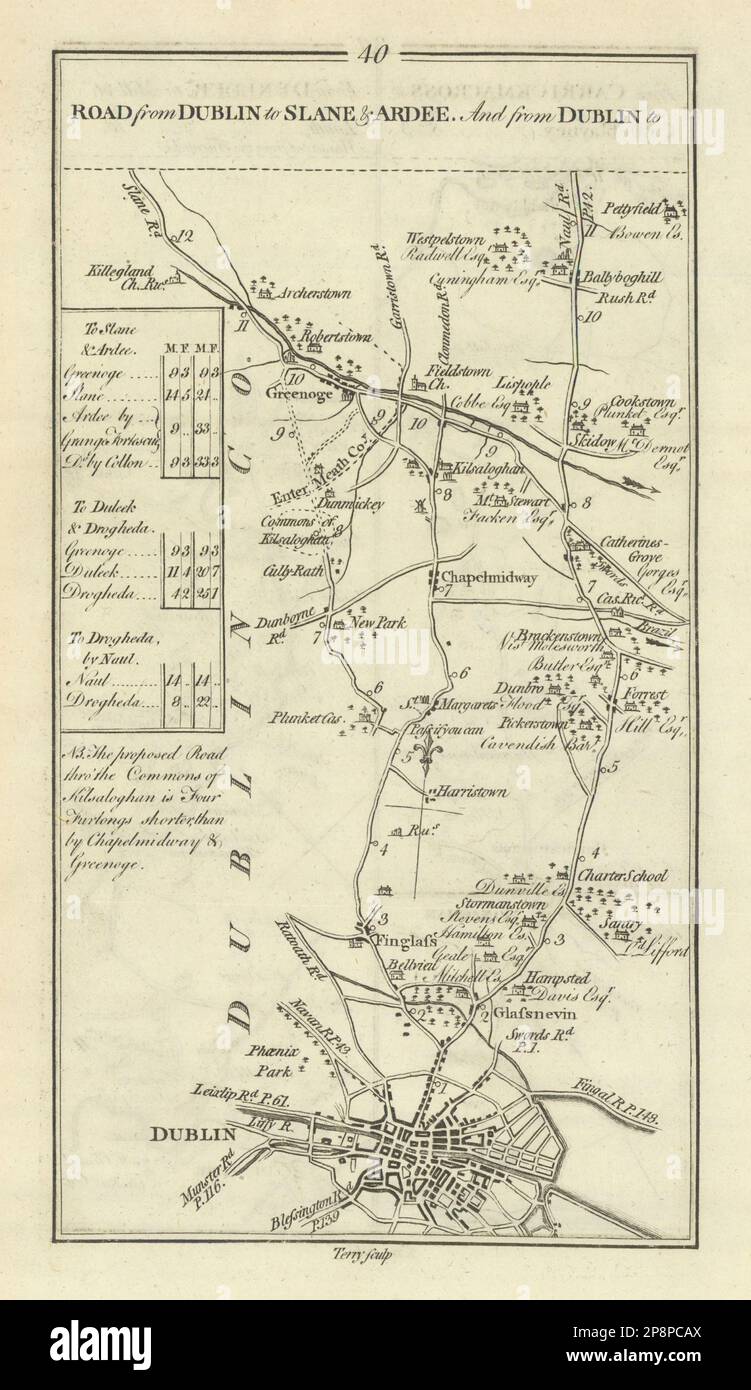 40
ROAD from DUBLIN to SLANE & ARDEE. And from DUBLIN to
Slane Rd
12
Killegland
Ch. Ru.s
Archerstown
11
Robertstown
10
Greenoge
Garristown Rd
Clonmedon Rd
Westpelstown
Radwell Esqr
Cuningham Esqr
Naul Rd
P.142.
Pettyfield
11
Bowen Es.
Ballyboghill
Rush Rd
10
Fieldstown
Ch.
Lishople
Cobbe Esqr
9
Cookstown
Plunket Esqr
Skidow
Mc Dermot
Esqr
To Slane
& Ardee.
M.F. M.F.
Greenoge 9 3 9 3
Slane 14 5 24 ..
Ardee by
Grange Fortescue 9 .. 33 ..
Do by Collon 9 3 33 3
To Duleek
& Drogheda.
Greenoge 9 3 9 3
Duleek 11 4 20 7
Drogheda 4 2 25 1
To Drogheda,
by Naul.
Naul 14 .. 14 ..
Drogheda 8 .. 22 ..
NB. The proposed Road
thro' the Commons of
Kilsaloghan is Four
Furlongs shorter, than
by Chapelmidway &
Greenoge.
DUBLIN CO.
9
9
10
9
Enter Meath Co.
Kilsaloghan
8
Mt Stewart
Facken Esqr
8
Dunmickey
Commons of
Kilsaloghan
9
Cully-Rath
Chapelmidway
7
Catherines-
Grove
Gorges
Esqr
Swords
7
Cas. Ru. Rd
Brazil
Dunboyne
Rd
7
New Park
Brackenstown
Vist Molesworth
Butler Esqr
6
6
6
St
Margarets
Dunbro
Flood Esqr
Forrest
Hill Esqr
Plunket Cas.
Pass if you can
Pickerstown
Cavendish Bar.
5
5
Harristown
Ru.s
4
4
Charter School
Dunville Es.
Stormanstown
Stevens Esq.
Hamilton Es.
Santry
Ld Lifford
3
Finglass
3
Geale Esqr
Bellview
Mitchell Es.
Hampsted
Davis Esqr.
Ratoath Rd
2
2
Glassnevin
Navan R P.43.
Swords Rd
P.1.
Phœnix
Park
1
Leixlip Rd P.61.
Fingal R P.148.
Liffy R.
DUBLIN
Munster Rd
P.116.
Blessington Rd
P.139
Terry sculp
alamy
alamy
Image ID: 2P8PCAX
www.alamy.com